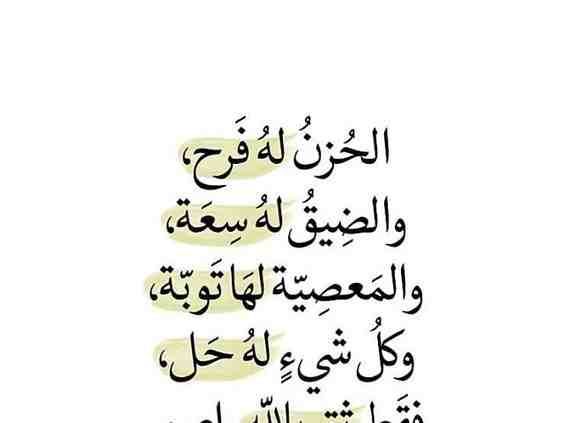 الحُزنُ لهُ فَرح،
والضِيقُ لهُ سِعَة،
والمَعصِيّة لهَا تَوبّة،
وكلُ شيءٍ لهُ حَل،
فقَط ثق بالله